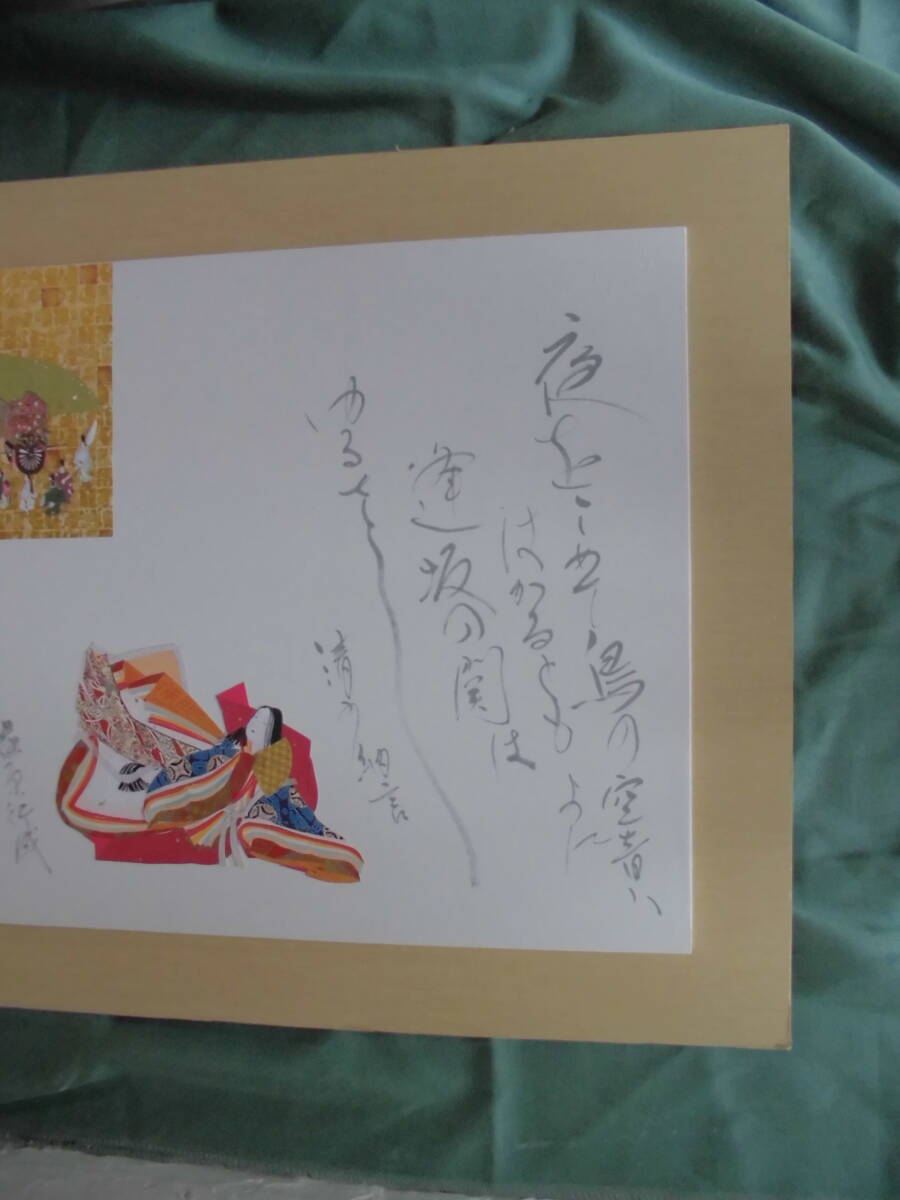 夜をこめて鳥の空音ハ
はかるとも よに
逢坂の関は
ゆるさし
清少納言